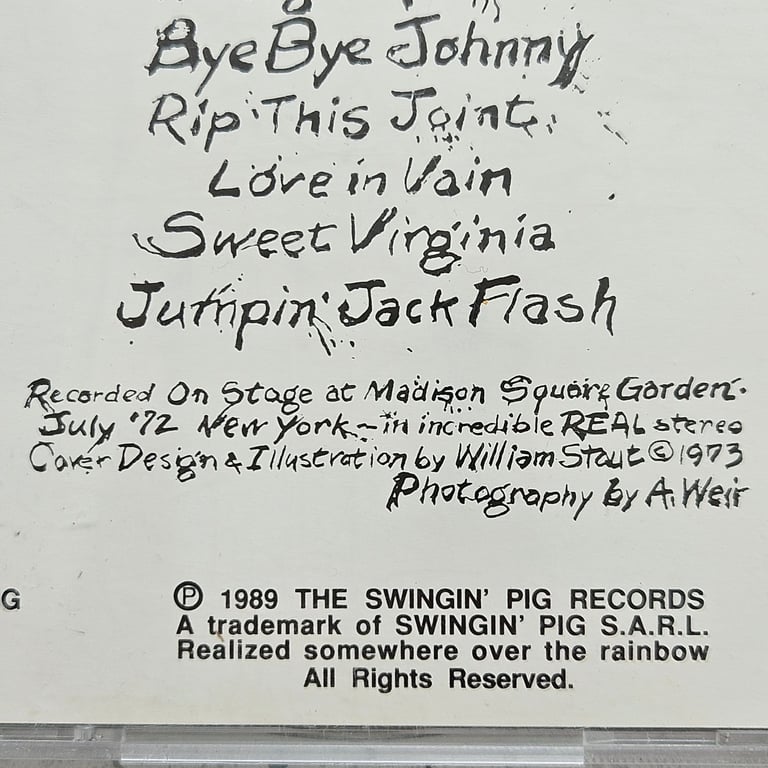 Bye Bye Johnny
Rip This Joint
Love in Vain
Sweet Virginia
Jumpin' Jack Flash
Recorded On Stage at Madison Square Garden.
July '72 New York - in incredible REAL stereo
Cover Design & Illustration by William Stout © 1973
Photography by A. Weir
G
℗ 1989 THE SWINGIN' PIG RECORDS
A trademark of SWINGIN' PIG S.A.R.L.
Realized somewhere over the rainbow
All Rights Reserved.